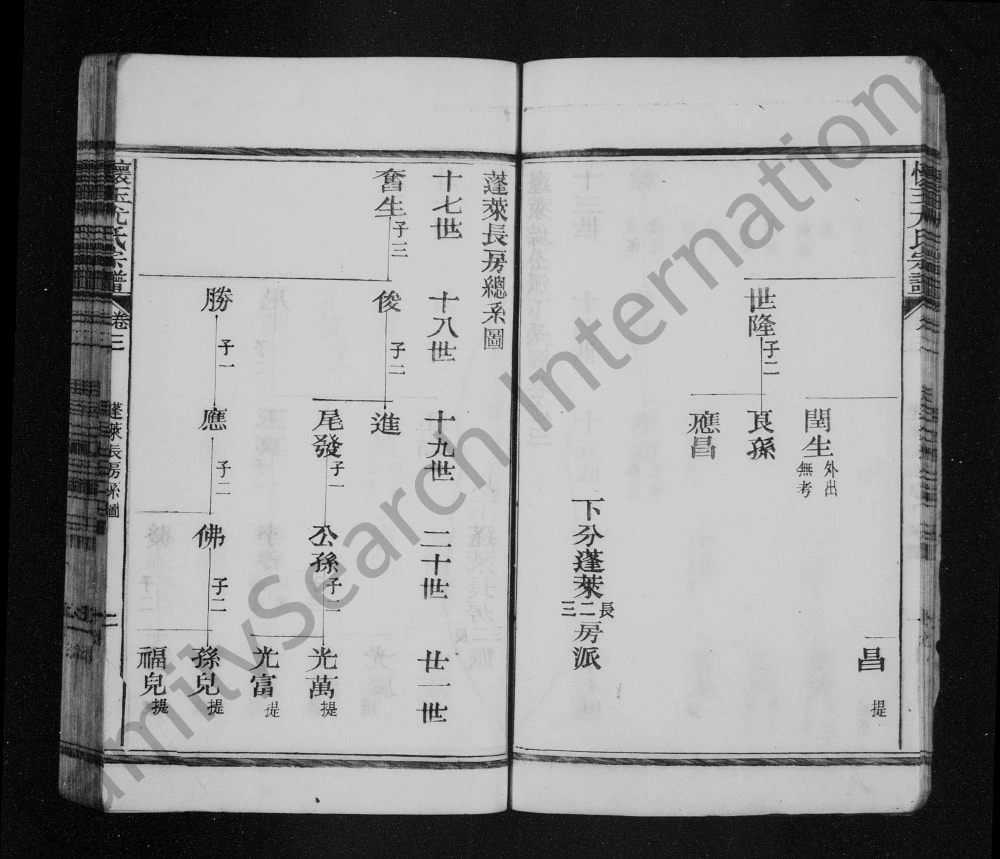 昌 提
閏生 外出無考
世隆 子二
良孫
應昌
下分蓬萊長二三房派
蓬萊長房總系圖
十七世 十八世 十九世 二十世 廿一世
奮生 子三
俊 子二
進
尾發 子一
公孫 子二
光萬 提
光富 提
勝 子一
應 子二
佛 子二
孫兒 提
福兒 提
氏宗譜
卷三
蓬萊長房系圖
二
FamilySearch International